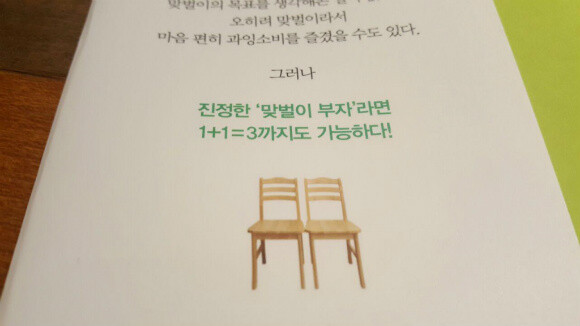 맞벌이의 목표를 생각해본
오히려 맞벌이라서
마음 편히 과잉소비를 즐겼을 수도 있다.
그러나
진정한 ‘맞벌이 부자’라면
1+1=3까지도 가능하다!